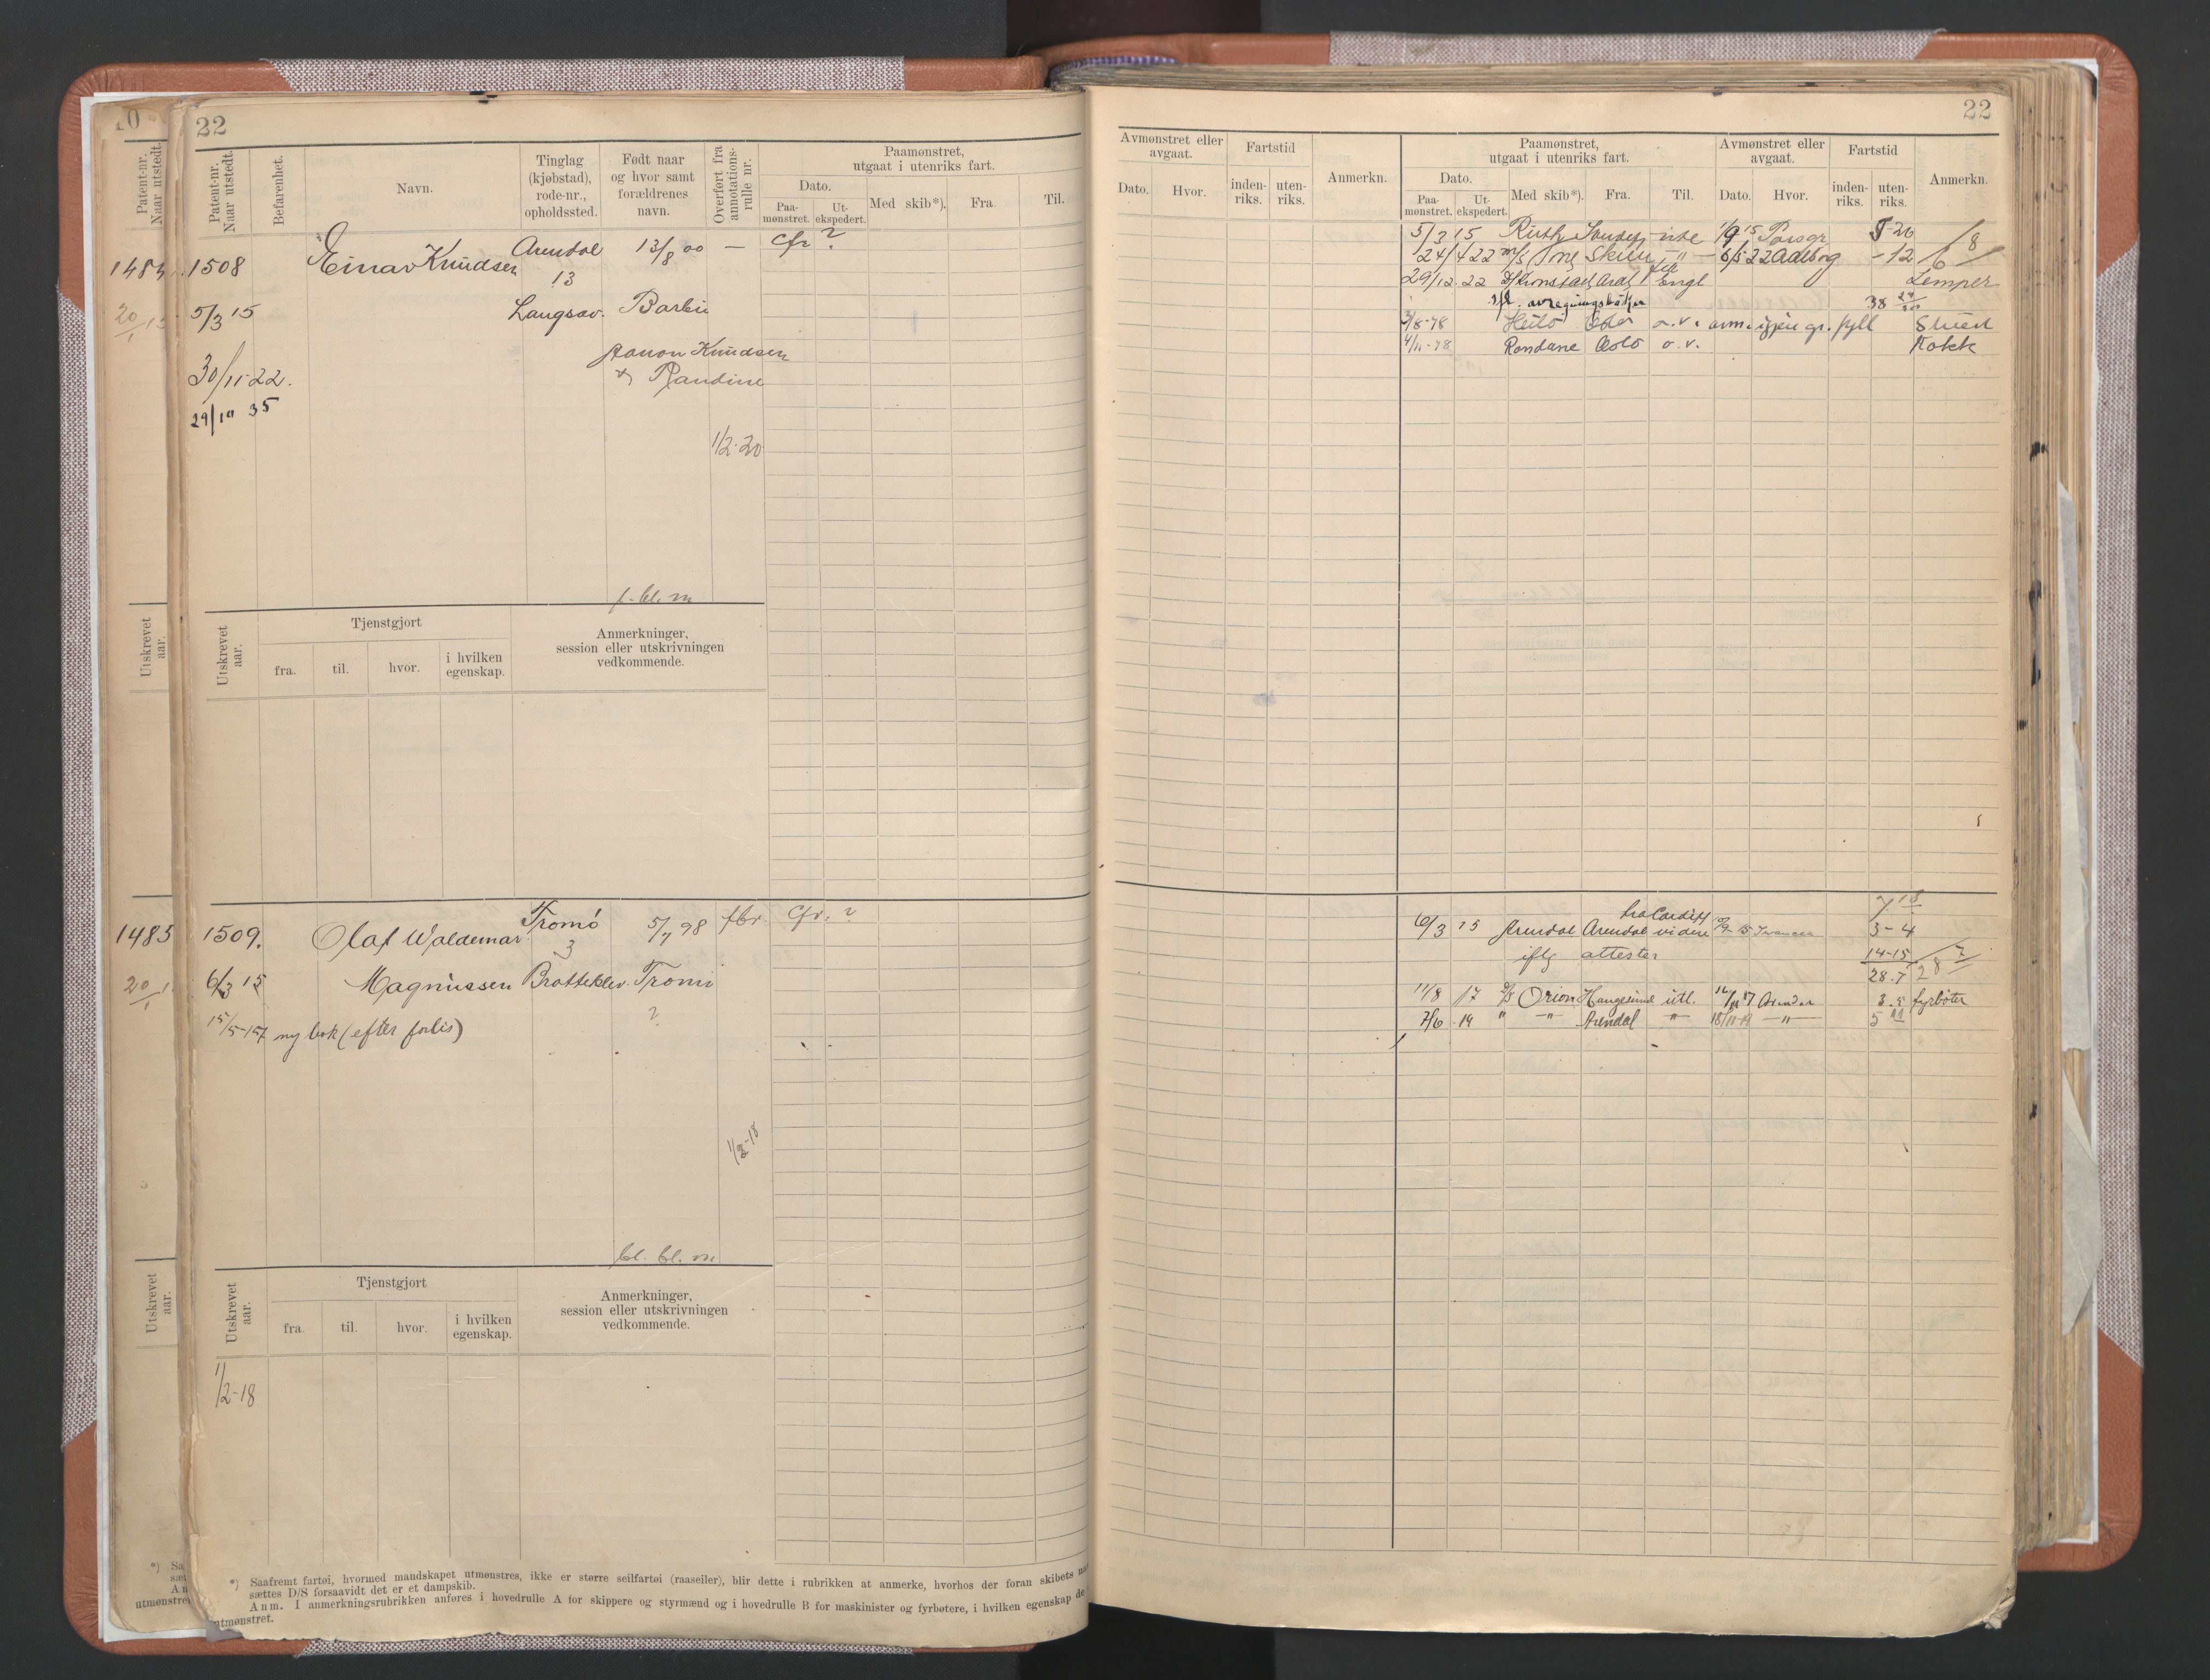 22
Patent-nr. Naar utstedt.
Befarenhet.
Navn.
Tinglag (kjøbstad), rode-nr., opholdssted.
Født naar og hvor samt forældrenes navn.
Overført fra annotations-rulle nr.
Paamønstret, utgaat i utenriks fart.
Dato.
Paa-mønstret.
Ut-ekspedert.
Med skib*).
Fra.
Til.
1508
Einar Knudsen
Arendal
13/8 00
—
Cfr ?
13
5/3 15
Langsæv.
Barbu
Aanon Knudsen
& Randine
30/11-22.
29/10 35
1/2-20
f. bl. m
Utskrevet aar.
Tjenstgjort
fra.
til.
hvor.
i hvilken egenskap.
Anmerkninger, session eller utskrivningen vedkommende.
1509.
Olaf Waldemar
Tromö
3
5/7 98
fbr.
Cfr. ?
6/3 15
Magnussen
Bratteklev.
Tromö
?
15/5-157 ny bok (efter forlis)
1/2-18
bl. bl. m
Utskrevet aar.
Tjenstgjort
fra.
til.
hvor.
i hvilken egenskap.
Anmerkninger, session eller utskrivningen vedkommende.
1/2-18
*) Saafremt fartøi, hvormed mandskapet utmønstres, ikke er større seilfartøi (raaseiler), blir dette i rubrikken at anmerke, hvorhos der foran skibets
sættes D/S forsaavidt det er et dampskib.
Anm. I anmerkningsrubrikken anføres i hovedrulle A for skippere og styrmænd og i hovedrulle B for maskinister og fyrbøtere, i hvilken egenskap de
utmønstret.
Patent-nr. Naar utstedt.
1484
20/1 15
Utskrevet aar.
1485
20/1
Utskrevet aar.
22
Avmønstret eller avgaat.
Dato.
Hvor.
Fartstid
inden-riks.
uten-riks.
Anmerkn.
Paamønstret, utgaat i utenriks fart.
Dato.
Paa-mønstret.
Ut-ekspedert.
Med skib*).
Fra.
Til.
Avmønstret eller avgaat.
Dato.
Hvor.
Fartstid
inden-riks.
uten-riks.
Anmerkn.
5/3 15 Ruth 1/9 15 Porsgr 5-26
24/4 22 m/s 6/5 22 Aalborg -12 6/8
29/12.22 D/ Kronstad Aral Engl Lemper
ifl. avregningsbøker 38
3/8-78 Heilo Oslo o.v. avm. igjen gr. fyll Stuert
4/11-78 Rondane Oslo o.v. Kokk
7 18
fra Cardiff
6/3 15 Arendal Arendal videre 15 3-4
iflg attester 14-15
28.7 28 7
11/8 17 D/S Orion Haugesund utl. 16/11 17 Arendal 3.5 fyrböter
7/6 19 " —"— Arendal —"— 18/11-19 —"— 5 11